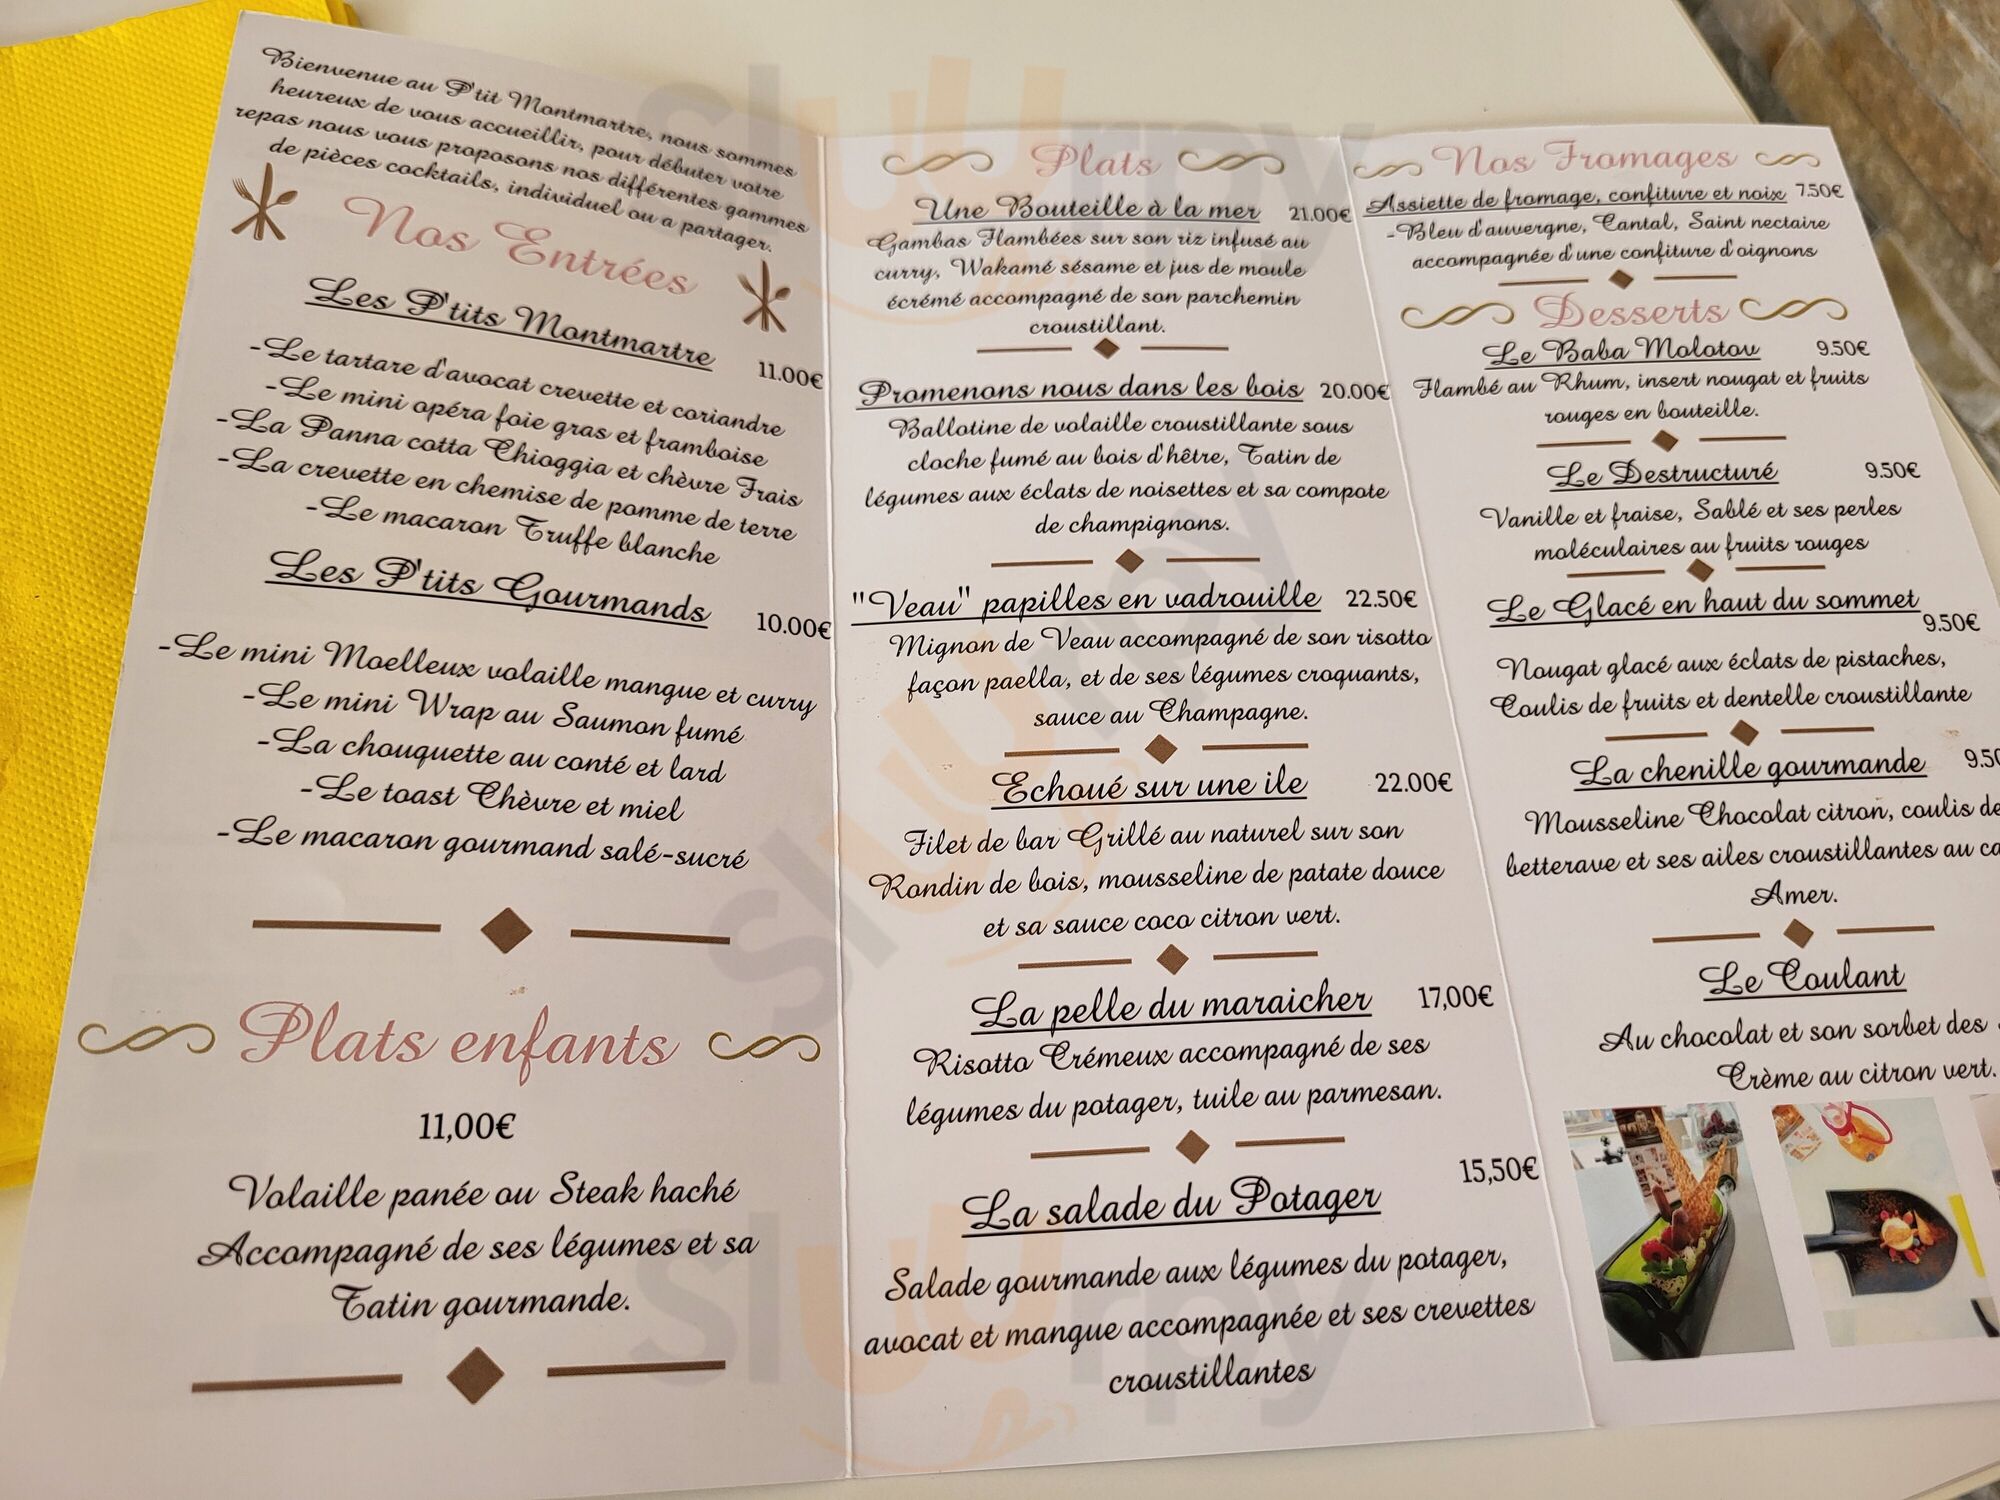 Bienvenue au P'tit Montmartre, nous sommes
heureux de vous accueillir, pour débuter votre
repas nous vous proposons nos différentes gammes
de pièces cocktails, individuel ou a partager.
Nos Entrées
Les P'tits Montmartre 11.00€
-Le tartare d'avocat crevette et coriandre
-Le mini opéra foie gras et framboise
-La Panna cotta Chioggia et chèvre Frais
-La crevette en chemise de pomme de terre
-Le macaron Truffe blanche
Les P'tits Gourmands 10.00€
-Le mini Moelleux volaille mangue et curry
-Le mini Wrap au Saumon fumé
-La chouquette au conté et lard
-Le toast Chèvre et miel
-Le macaron gourmand salé-sucré
Plats enfants
11,00€
Volaille panée ou Steak haché
Accompagné de ses légumes et sa
Tatin gourmande.
Plats
Une Bouteille à la mer 21.00€
Gambas Flambées sur son riz infusé au
curry, Wakamé sésame et jus de moule
écrémé accompagné de son parchemin
croustillant.
Promenons nous dans les bois 20.00€
Ballotine de volaille croustillante sous
cloche fumé au bois d'hêtre, Tatin de
légumes aux éclats de noisettes et sa compote
de champignons.
"Veau" papilles en vadrouille 22.50€
Mignon de Veau accompagné de son risotto
façon paella, et de ses légumes croquants,
sauce au Champagne.
Echoué sur une ile 22.00€
Filet de bar Grillé au naturel sur son
Rondin de bois, mousseline de patate douce
et sa sauce coco citron vert.
La pelle du maraicher 17,00€
Risotto Crémeux accompagné de ses
légumes du potager, tuile au parmesan.
La salade du Potager 15,50€
Salade gourmande aux légumes du potager,
avocat et mangue accompagnée et ses crevettes
croustillantes
Nos Fromages
Assiette de fromage, confiture et noix 7.50€
-Bleu d'auvergne, Cantal, Saint nectaire
accompagnée d'une confiture d'oignons
Desserts
Le Baba Molotov 9.50€
Flambé au Rhum, insert nougat et fruits
rouges en bouteille.
Le Destructuré 9.50€
Vanille et fraise, Sablé et ses perles
moléculaires au fruits rouges
Le Glacé en haut du sommet 9.50€
Nougat glacé aux éclats de pistaches,
Coulis de fruits et dentelle croustillante
La chenille gourmande 9.50
Mousseline Chocolat citron, coulis de
betterave et ses ailes croustillantes au ca
Amer.
Le Coulant
Au chocolat et son sorbet des
Crème au citron vert.
slurpy
slurpy
slurpy